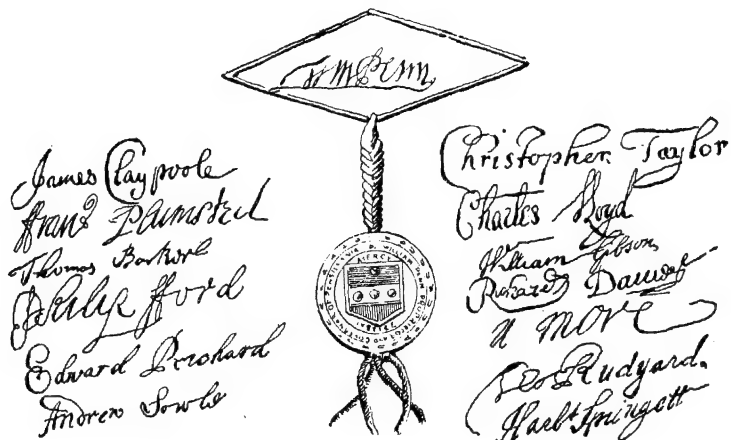 Wm Penn
James Claypoole
Franˢ Plumsted
Thomas Barker
Philip Ford
Edward Prichard
Andrew Sowle
Christopher Taylor
Charles Lloyd
William Gibson
Richard Davies
n more
Geo Rudyard.
Harbᵗ Springett
MERCY
JUSTICE